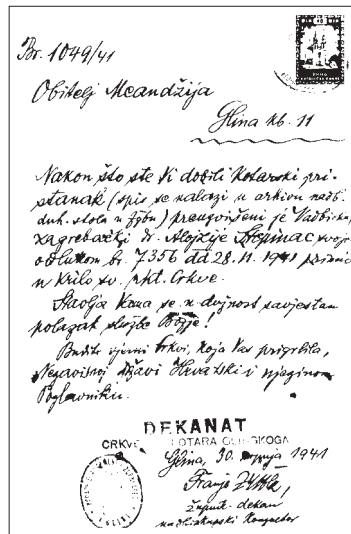 Br. 1049/41
Obitelj Meandžija
Glina kb. 11
Nakon što ste Vi dobili Kotarski pri-
stanak (spis se nalazi u arkivu nadb.
duh. stola u Zgbu) preuzvišeni je Nadbiskup
zagrebački dr. Alojzije Stepinac svojom
odlukom br. 7356 od 28. 11. 1941
u krilo sv. rkt. Crkve.
Stavlja Vama se u dužnost savjestan
polazak službe Božje!
Budite vjerni Crkvi, koja Vas prigrlila,
Nezavisnoj Državi Hrvatskoj i njezinom
Poglavniku.
DEKANAT
CRKVE KOTARA
Glina, 30. 1941
Franjo
župnik-dekan
nadbiskupski